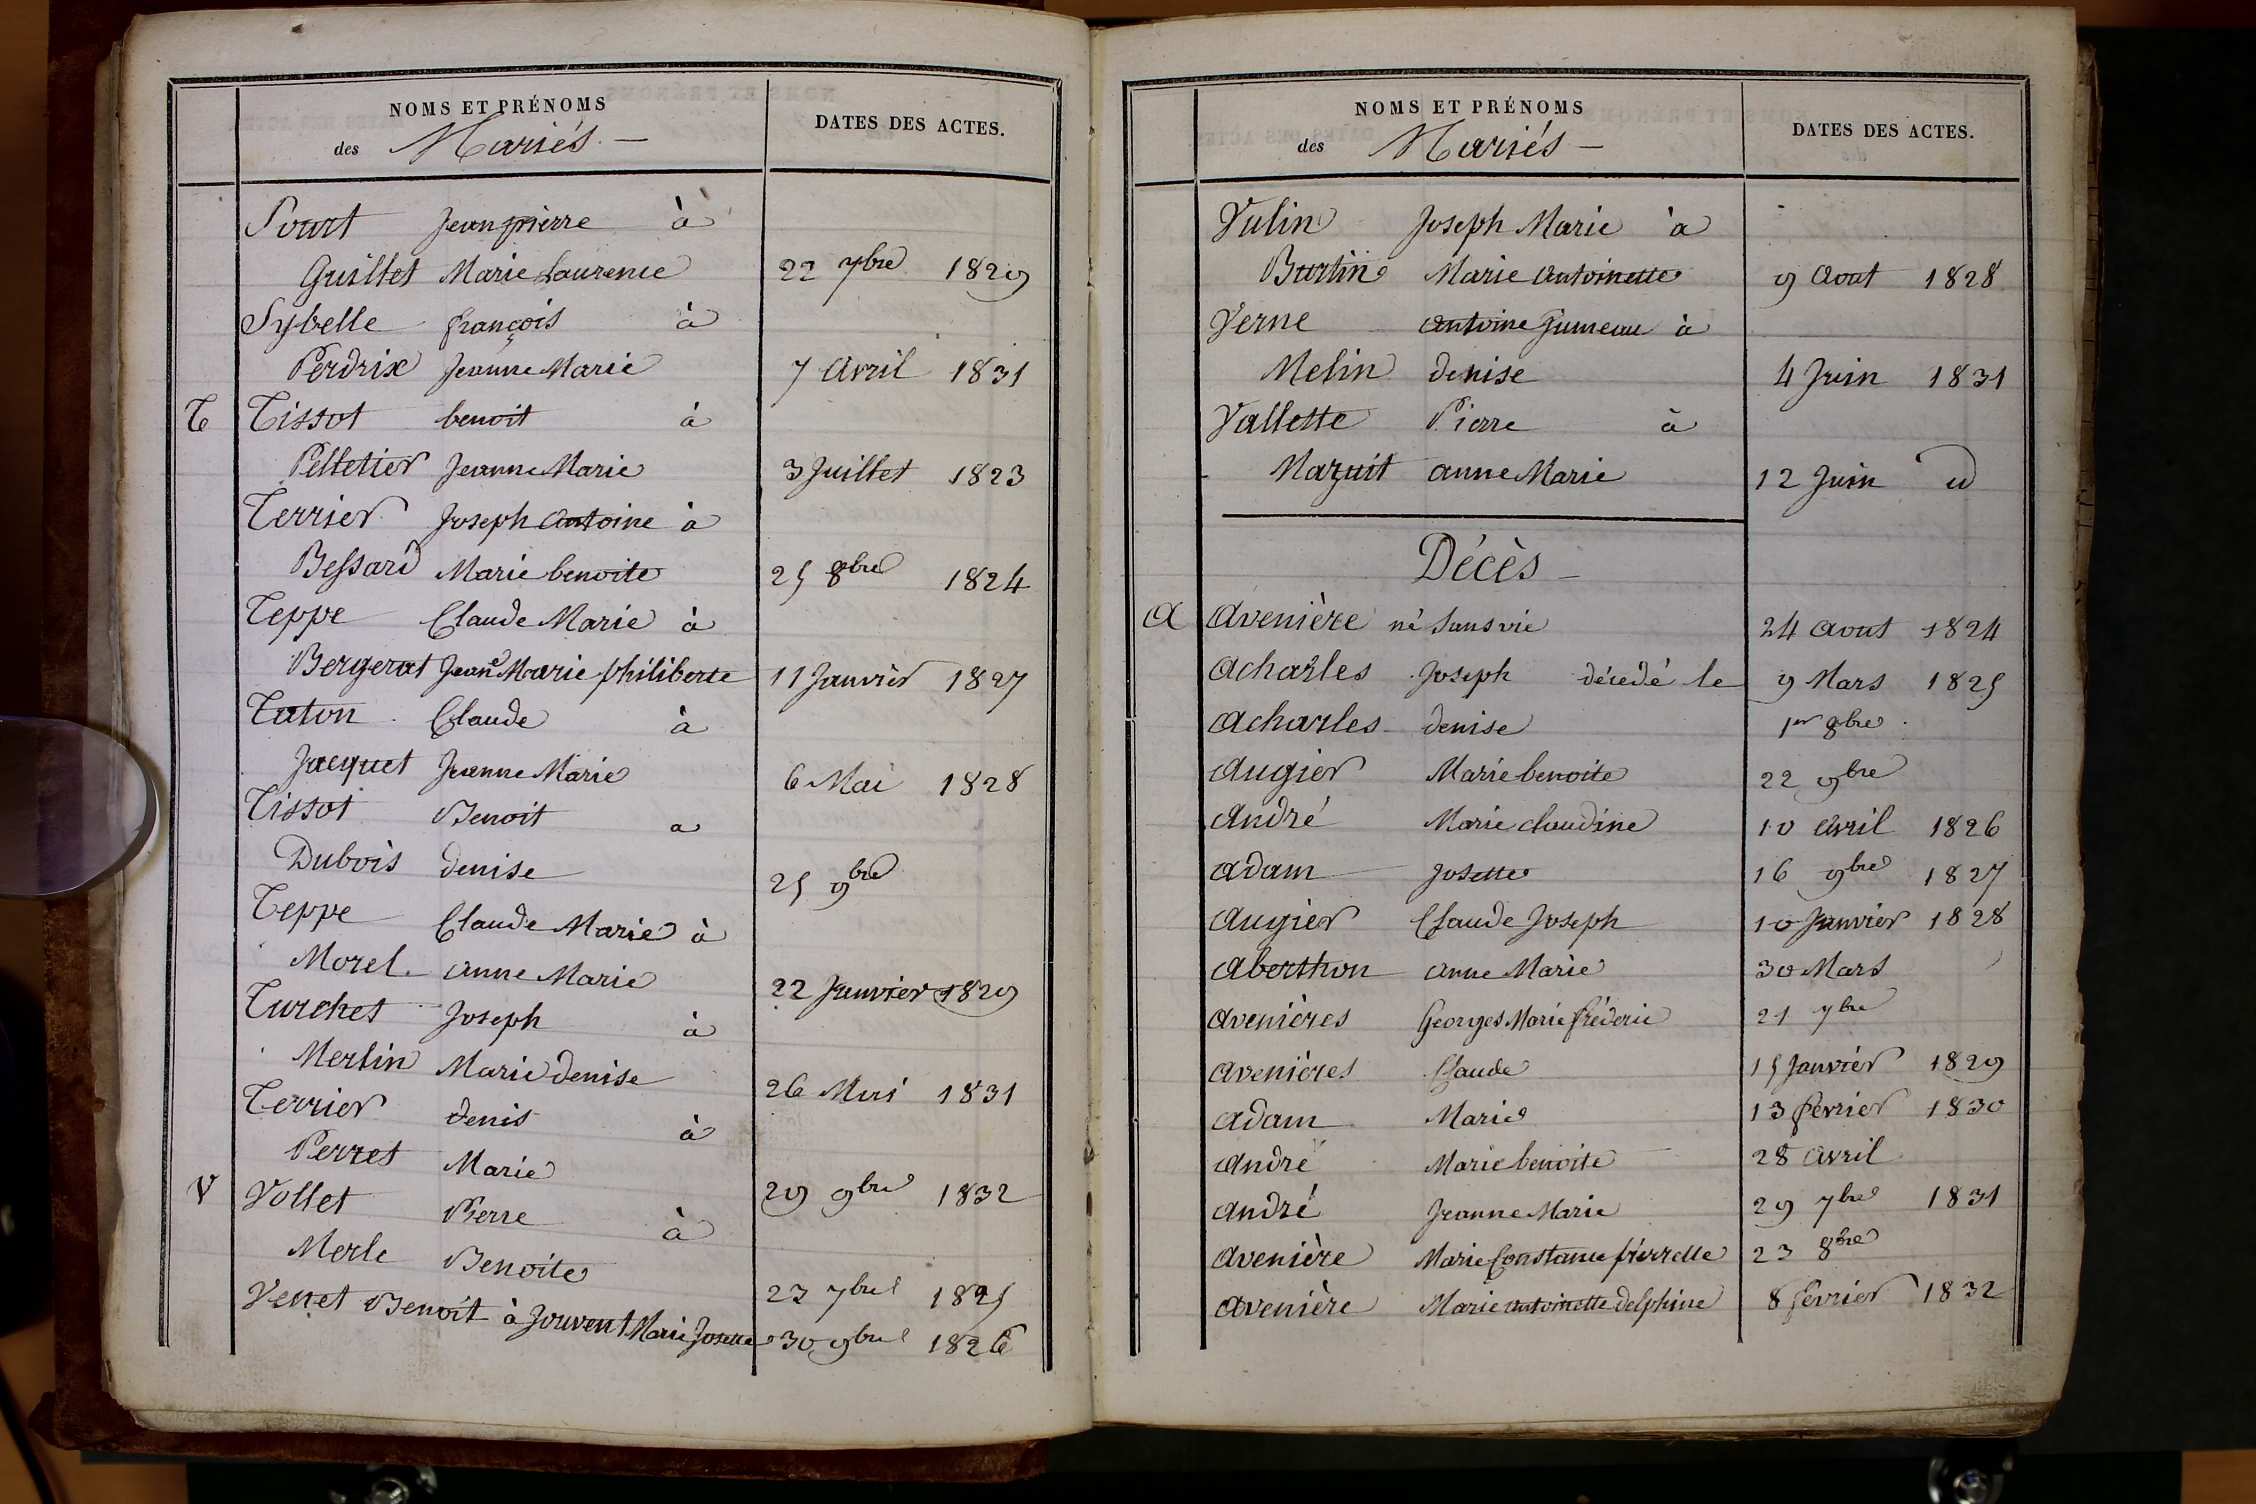 NOMS ET PRÉNOMS
des Mariés - DATES DES ACTES.
Sourt Jean pierre à
Guillet Marie Laurence 22 7bre 1829
Sybelle françois à
Perdrix Jeanne Marie 7 avril 1831
T Tissot benoit à
Pelletier Jeanne Marie 3 Juillet 1823
Terrier Joseph antoine à
Bessard Marie benoite 25 8bre 1824
Teppe Claude Marie à
Bergerat Jeane Marie philiberte 11 Janvier 1827
Taton Claude à
Jacquet Jeanne Marie 6 Mai 1828
Tissot Benoit a
Dubois denise 25 9bre
Teppe Claude Marie à
Morel anne Marie 22 Janvier 1829
Turchet Joseph à
Merlin Marie denise 26 Mai 1831
Terrier denis à
Perret Marie 29 9bre 1832
V Vollet Pierre à
Merle Benoite 23 7bre 1825
Venet Benoit à Jouvent Marie Josette 30 9bre 1826
NOMS ET PRÉNOMS
des Mariés - DATES DES ACTES.
Vulin Joseph Marie à
Burtin Marie antoinette 9 Aout 1828
Verne antoine Jumeau à
Melin denise 4 Juin 1831
Vallette Pierre à
Mazuit anne Marie 12 Juin id
Décès -
A avenière né sans vie 24 aout 1824
acharles Joseph décédé le 9 Mars 1825
acharles denise 1er 8bre
augier Marie benoite 22 9bre
andré Marie claudine 10 avril 1826
adam Josette 16 9bre 1827
augier Claude Joseph 10 Janvier 1828
aberthon anne Marie 30 Mars
avenières Georges Marie fréderic 21 7bre
avenières Claude 15 Janvier 1829
adam Marie 13 février 1830
andré Marie benoite 28 avril
andré Jeanne Marie 29 7bre 1831
avenière Marie Constance pierrette 23 8bre
avenière Marie antoinette delphine 8 février 1832